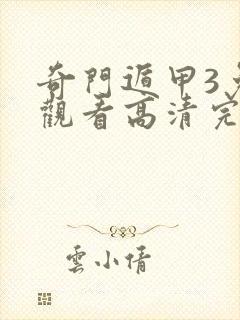 奇門遁甲3
觀看高清完
雲小倩